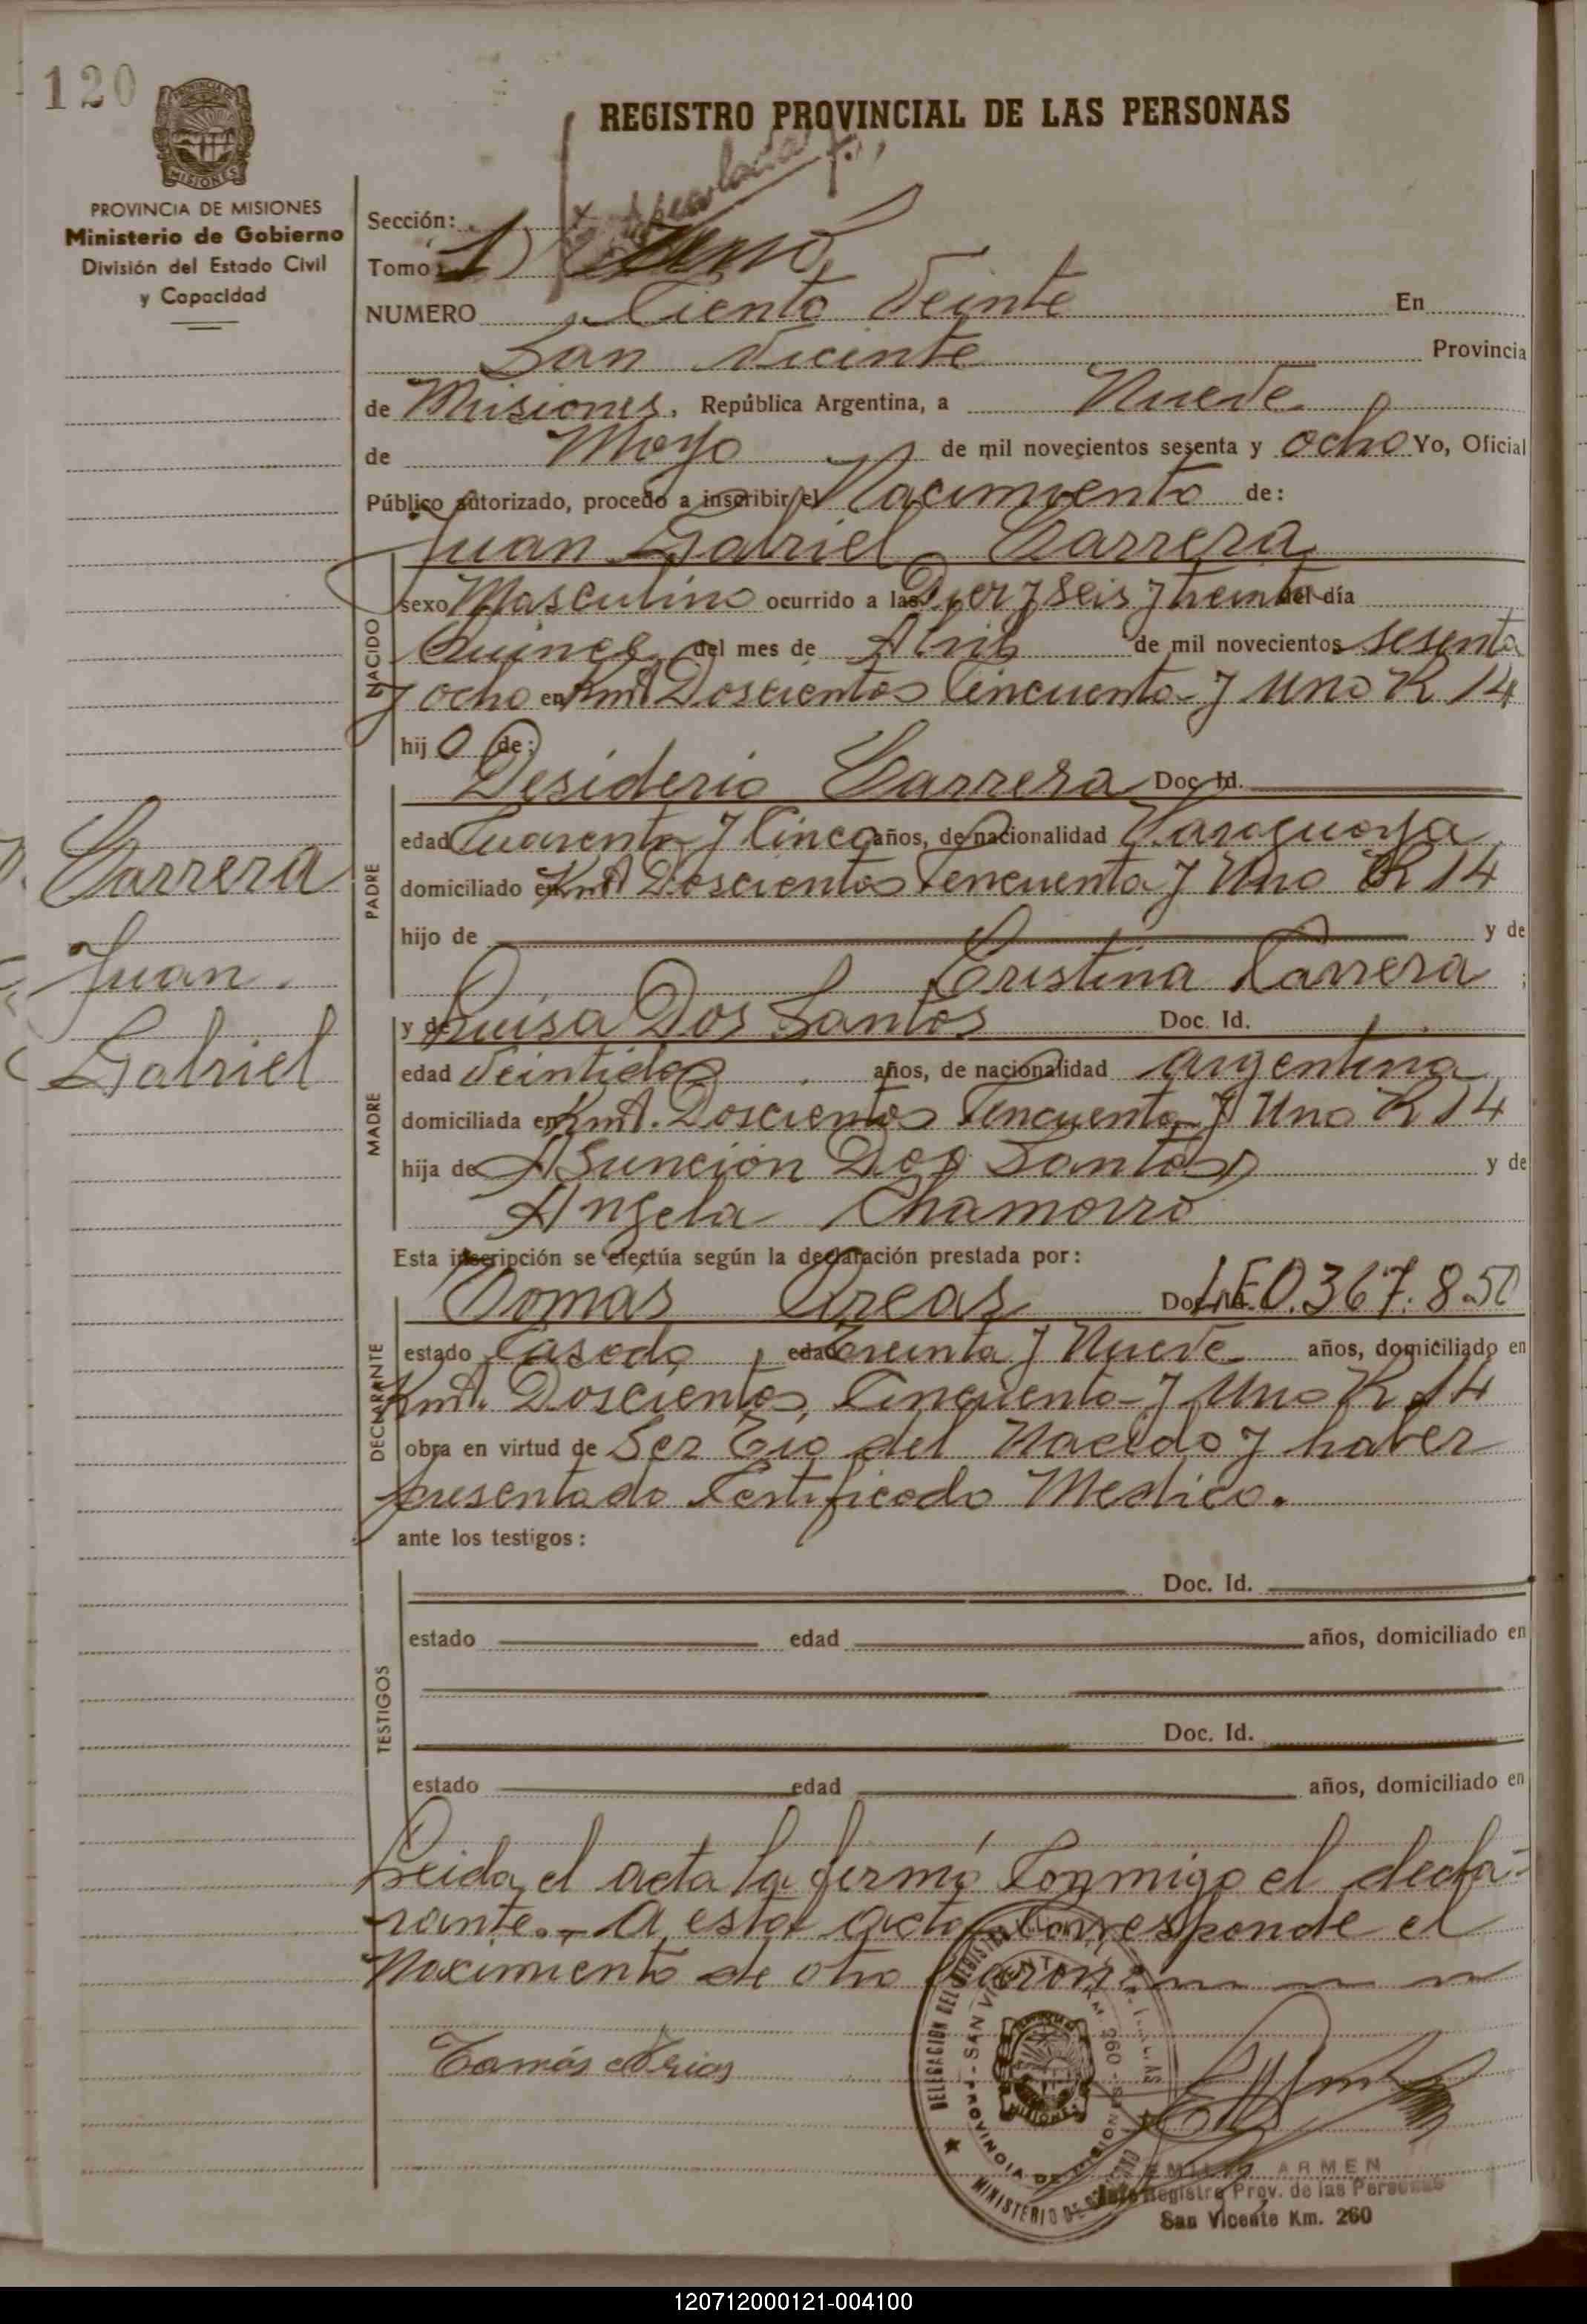 120
REGISTRO PROVINCIAL DE LAS PERSONAS
PROVINCIA DE MISIONES
Ministerio de Gobierno
División del Estado Civil
y Capacidad
Sección:
Tomo: 1)
NUMERO Ciento Veinte En
San Vicente Provincia
de Misiones, República Argentina, a Nueve
de Mayo de mil novecientos sesenta y ocho Yo, Oficial
Público autorizado, procedo a inscribir el Nacimiento de:
Juan Gabriel Carrera
NACIDO
sexo Masculino ocurrido a las Diez y seis y treinta del día
Quince del mes de Abril de mil novecientos sesenta
y ocho en Kmt Doscientos Cincuenta y Uno R 14
hij o de:
Desiderio Carrera Doc. Id.
PADRE
edad Cuarenta y Cinco años, de nacionalidad Paraguaya
domiciliado en Kmt Doscientos Cincuenta y Uno R 14
hijo de y de
Cristina Carrera ;
y de Luisa Dos Santos Doc. Id.
MADRE
edad Veintidos años, de nacionalidad argentina
domiciliada en Kmt. Doscientos Cincuenta y Uno R 14
hija de Asunción Dos Santos y de
Angela Chamorro
Carrera
Juan
Gabriel
Esta inscripción se efectúa según la declaración prestada por:
Tomás Doc. Id. LE 0.367.850
DECLARANTE
estado Casado, edad Treinta y Nueve años, domiciliado en
Kmt. Doscientos Cincuenta y Uno R 14
obra en virtud de Ser Tio del Nacido y haber
presentado Certificado Medico.
ante los testigos:
TESTIGOS
Doc. Id.
estado edad años, domiciliado en
Doc. Id.
estado edad años, domiciliado en
Leida el acta la firmó Conmigo el decla-
rante.- A esta acta Corresponde el
Nacimiento de otro Varon
Tomás
DELEGACION DEL REGISTRO
SAN VICENTE KM. 260
PROVINCIA DE MISIONES
MINISTERIO DE GOBIERNO
MISIONES
EMILIO ARMEN
Jefe Registro Prov. de las Personas
San Vicente Km. 260
120712000121-004100